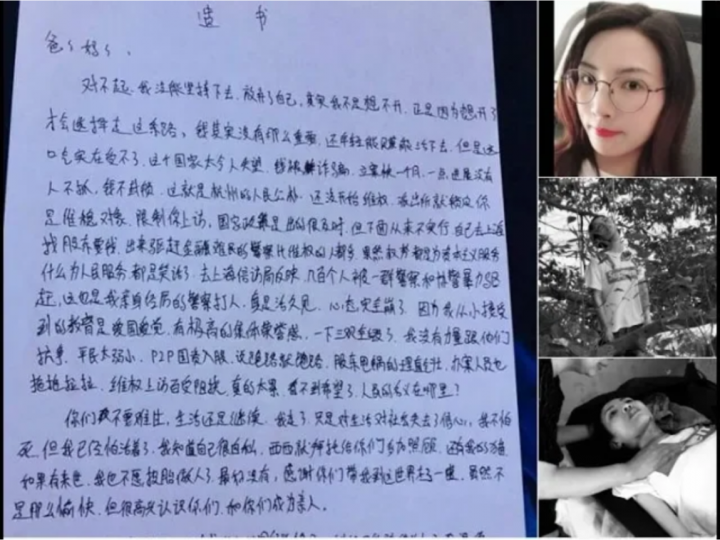 遗 书
爸爸妈妈、
对不起,我没能坚持下去,放弃了自己,其实我不是想不开,正是因为想开了
才会选择走这条路。我其实没有那么重要,还年轻能赚钱活下去,但是这
口气实在受不了。这个国家太令人失望,钱被诈骗,立案快一个月,一点进展没有
人不抓,钱不封锁,这就是杭州的人民公朴,还没开始维权,派出所就锁定你
是维稳对象,限制你上访,国家政策是出的很及时,但下面从来不实行,自己去上海
找股东要钱,出来驱赶金融难民的警察比维权的人都多,果然权贵都是为资本主义服务
什么为人民服务都是笑话了,去上海信访局反映,几百个人被一群警察和协警暴力驱
赶,这也是我亲身经历的警察打人,真是活久见,心态完全崩了,因为我从小接受
到的教育是爱国爱党,有极高的集体荣誉感,一下三观全毁了,我没有力量跟他们
抗争,平民太弱小,P2P国资入股,说跑路就跑路,股东甩锅的理直气壮,办案人员也
拖拖拉拉,维权上访百受阻挠,真的太累,看不到希望了,人民的名义在哪里?
你们不要难过,生活还是继续,我走了,只是对生活对社会失去了信心,我不怕
死,但我已经怕活着了,我知道自己很自私,西西就拜托给你们多多照顾,还有我的
如果有来世,我也不愿投胎做人了,最好没有,感谢你们带我到这世界走一趟,虽然不
是那么愉快,但很高兴认识你们,和你们成为亲人。